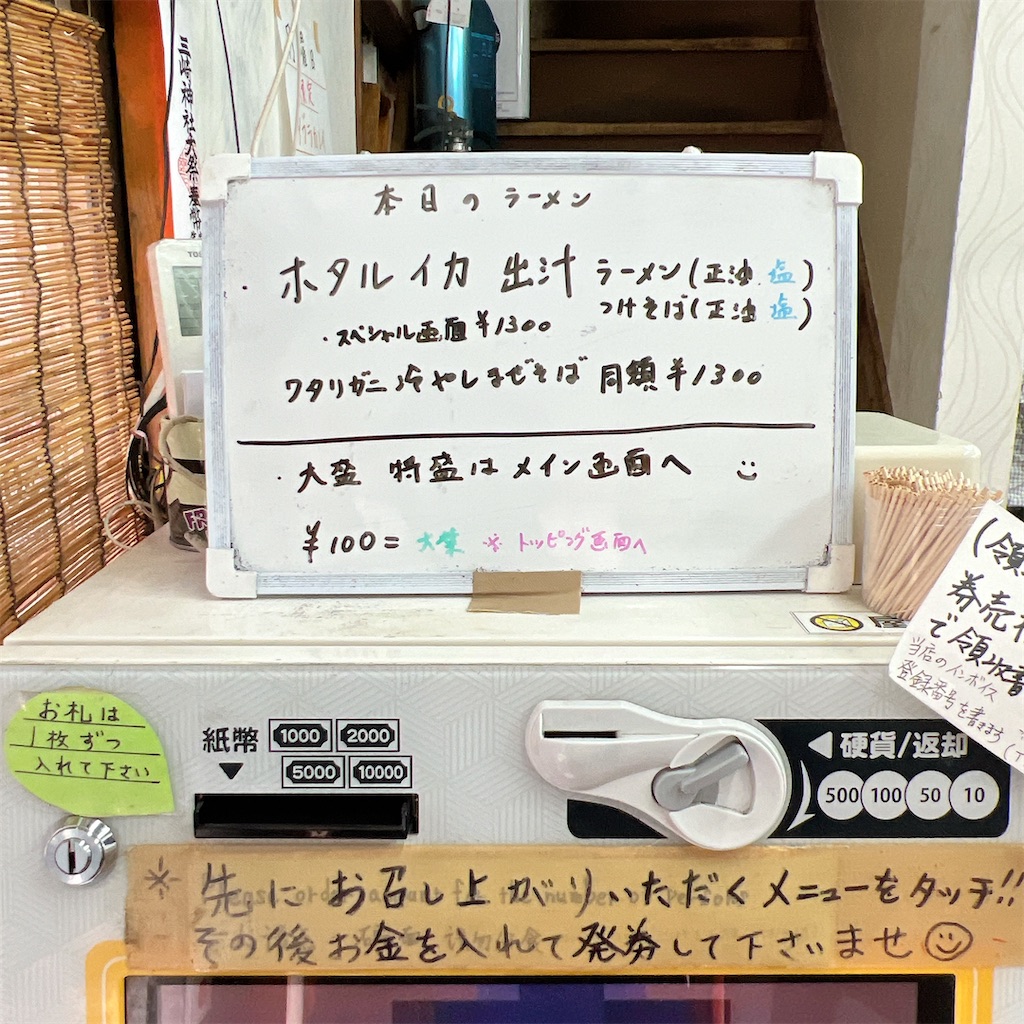 三崎神社大祭
本日のラーメン
・ホタルイカ 出汁 ラーメン(正油 塩)
つけそば(正油 塩)
・スペシャル画面¥1300
ワタリガニ冷やしまぜそば 同額¥1300
・大盛 特盛はメイン画面へ
¥100= 大葉 ※トッピング画面へ
(領
券売
で領収書
当店のインボイス
登録番号を書きます
お札は
1枚ずつ
入れて下さい
紙幣 1000 2000
5000 10000
硬貨/返却
500 100 50 10
*先にお召し上がりいただくメニューをタッチ!!
その後お金を入れて発券して下さいませ